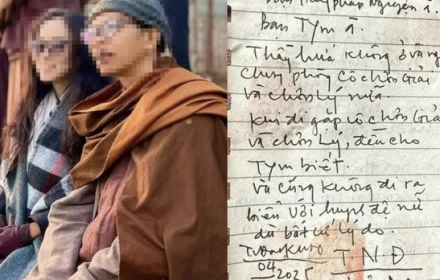 Ban Tym á.
Thầy hứa không ở riêng
chung phòng cô chơn Giải
và chơn Lý nữa.
Khi đi gặp cô chơn Giải
và chơn Lý, đều cho
Tym biết.
và cũng không đi ra
biển với huynh đệ nữ
dù bất cứ lý do.
04
2025
T.N.Đ